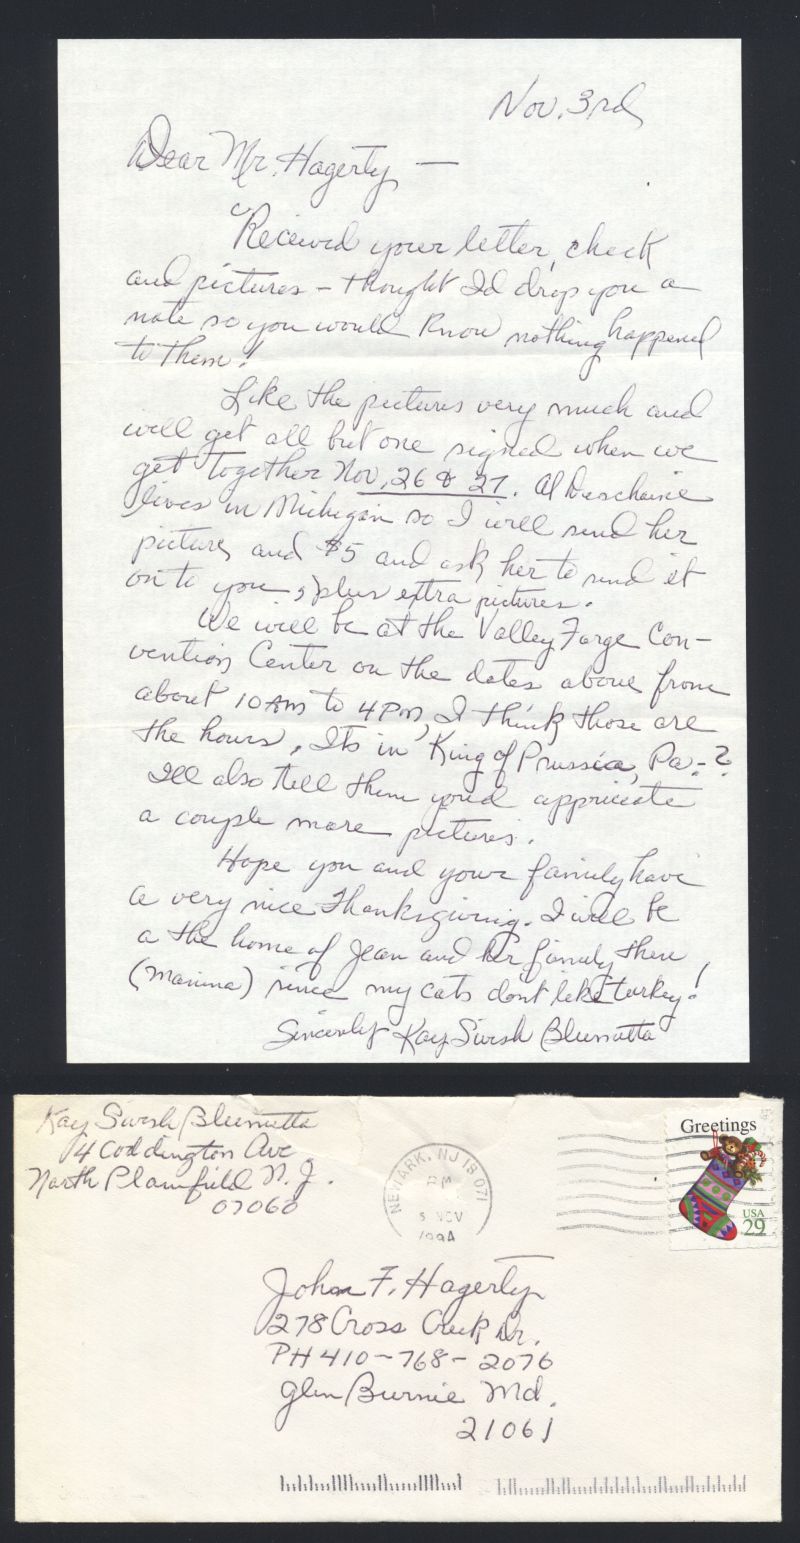 Nov. 3rd
Dear Mr. Hagerty —
Received your letter, check
and pictures – thought I'd drop you a
note so you would know nothing happened
to them!
Like the pictures very much and
will get all but one signed when we
get together Nov. 26 & 27. Al Deschaine
lives in Michigan so I will send her
picture, and $5 and ask her to send it
on to you, plus extra pictures.
We will be at the Valley Forge Con-
vention Center on the dates above from
about 10 AM to 4 PM, I think those are
the hours. Its in King of Prussia, Pa-?
I'll also tell them you'd appriciate
a couple more pictures.
Hope you and your family have
a very nice Thanksgiving. I will be
a the home of Jean and her family then
(Marina) since my cats don't like turkey!
Sincerely Kay Swish Blumetta
Kay Swish Blumetta
14 Coddington Ave.
North Plainfield N.J.
07060
NEWARK, NJ 18 071
PM
5 NOV
1994
Greetings
USA
29
John F. Hagerty
278 Cross Creek Dr.
PH 410-768-2076
Glen Burnie Md.
21061